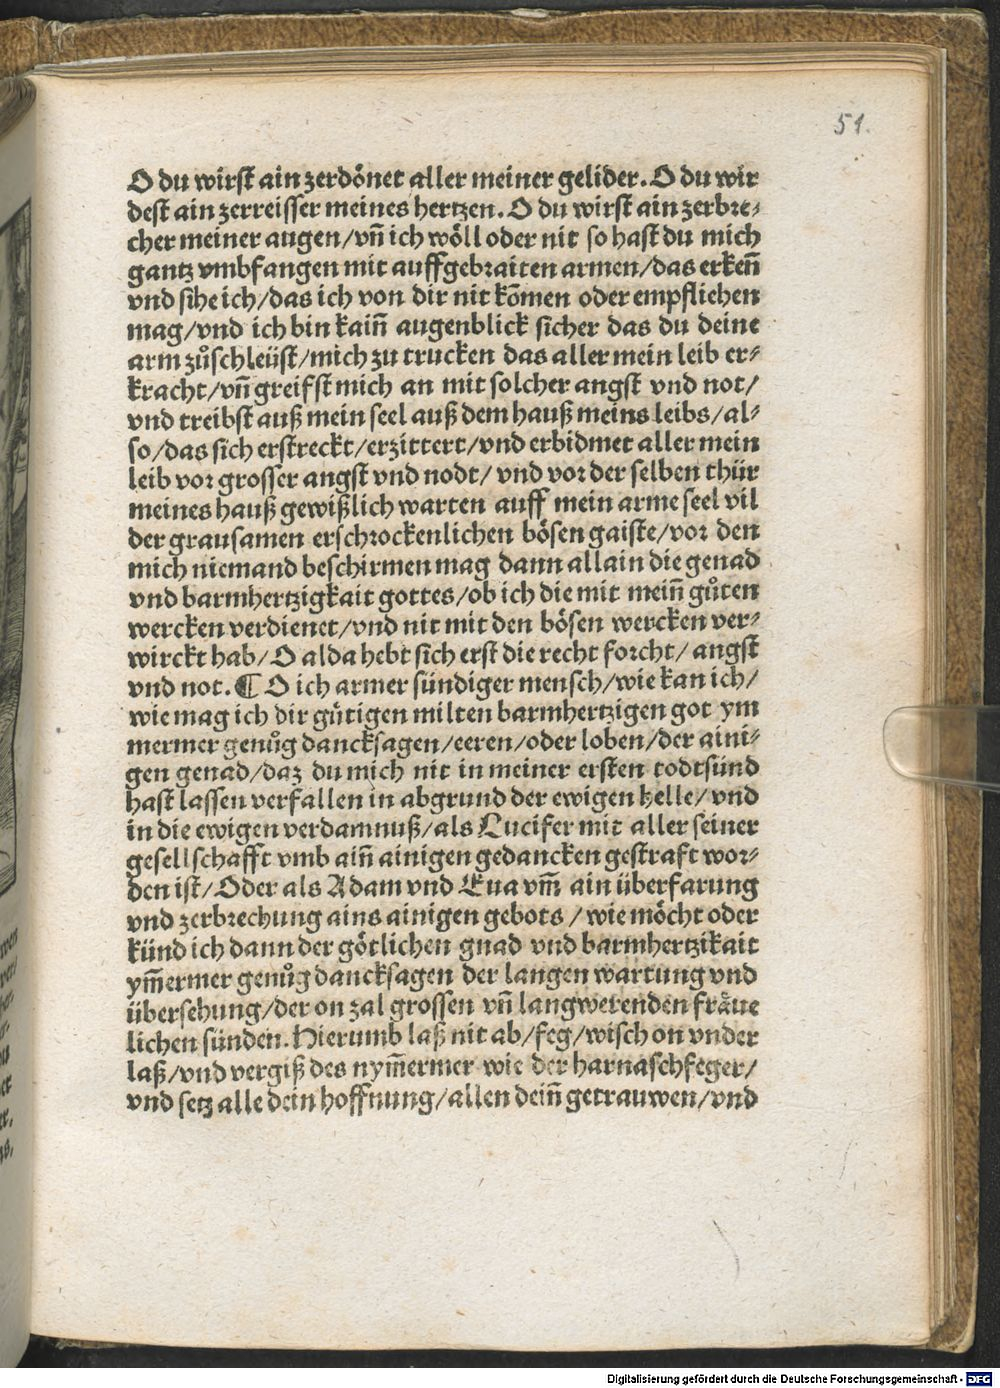 51.
O du wirst ain zerdönet aller meiner gelider. O du wir
dest ain zerreisser meines hertzen. O du wirst ain zerbre⸗
cher meiner augen/vñ ich wöll oder nit so hast du mich
gantz vmbfangen mit auffgebraiten armen/das erkeñ
vnd sihe ich/das ich von dir nit kõmen oder empfliehen
mag/vnd ich bin kaiñ augenblick sicher das du deine
arm zůschleüst/mich zu trucken das aller mein leib er⸗
kracht/vñ greifst mich an mit solcher angst vnd not/
vnd treibst auß mein seel auß dem hauß meins leibs/al⸗
so/das sich erstreckt/erzittert/vnd erbidmet aller mein
leib vor grosser angst vnd nodt/ vnd vor der selben thür
meines hauß gewißlich warten auff mein arme seel vil
der grausamen erschrockenlichen bösen gaiste/vor den
mich niemand beschirmen mag dann allain die genad
vnd barmhertzigkait gottes/ob ich die mit meiñ gůten
wercken verdienet/vnd nit mit den bösen wercken ver⸗
wirckt hab/O alda hebt sich erst die recht forcht/ angst
vnd not. ¶ O ich armer sündiger mensch/wie kan ich/
wie mag ich dir gütigen milten barmhertzigen got ym
mermer genůg dancksagen/eeren/oder loben/der aini⸗
gen genad/daz du mich nit in meiner ersten todtsünd
hast lassen verfallen in abgrund der ewigen helle/vnd
in die ewigen verdamnuß/als Lucifer mit aller seiner
gesellschafft vmb aiñ ainigen gedancken gestraft wor⸗
den ist/Oder als Adam vnd Eua vm̃ ain überfarung
vnd zerbrechung ains ainigen gebots/wie möcht oder
künd ich dann der götlichen gnad vnd barmhertzikait
ym̃ermer genůg dancksagen der langen wartung vnd
übersehung/der on zal grossen vñ langwerenden fräue
lichen sünden. Hierumb laß nit ab/feg/wisch on vnder
laß/vnd vergiß des nym̃ermer wie der harnaschfeger/
vnd setz alle dein hoffnung/allen deiñ getrauwen/vnd
Digitalisierung gefördert durch die Deutsche Forschungsgemeinschaft - DFG